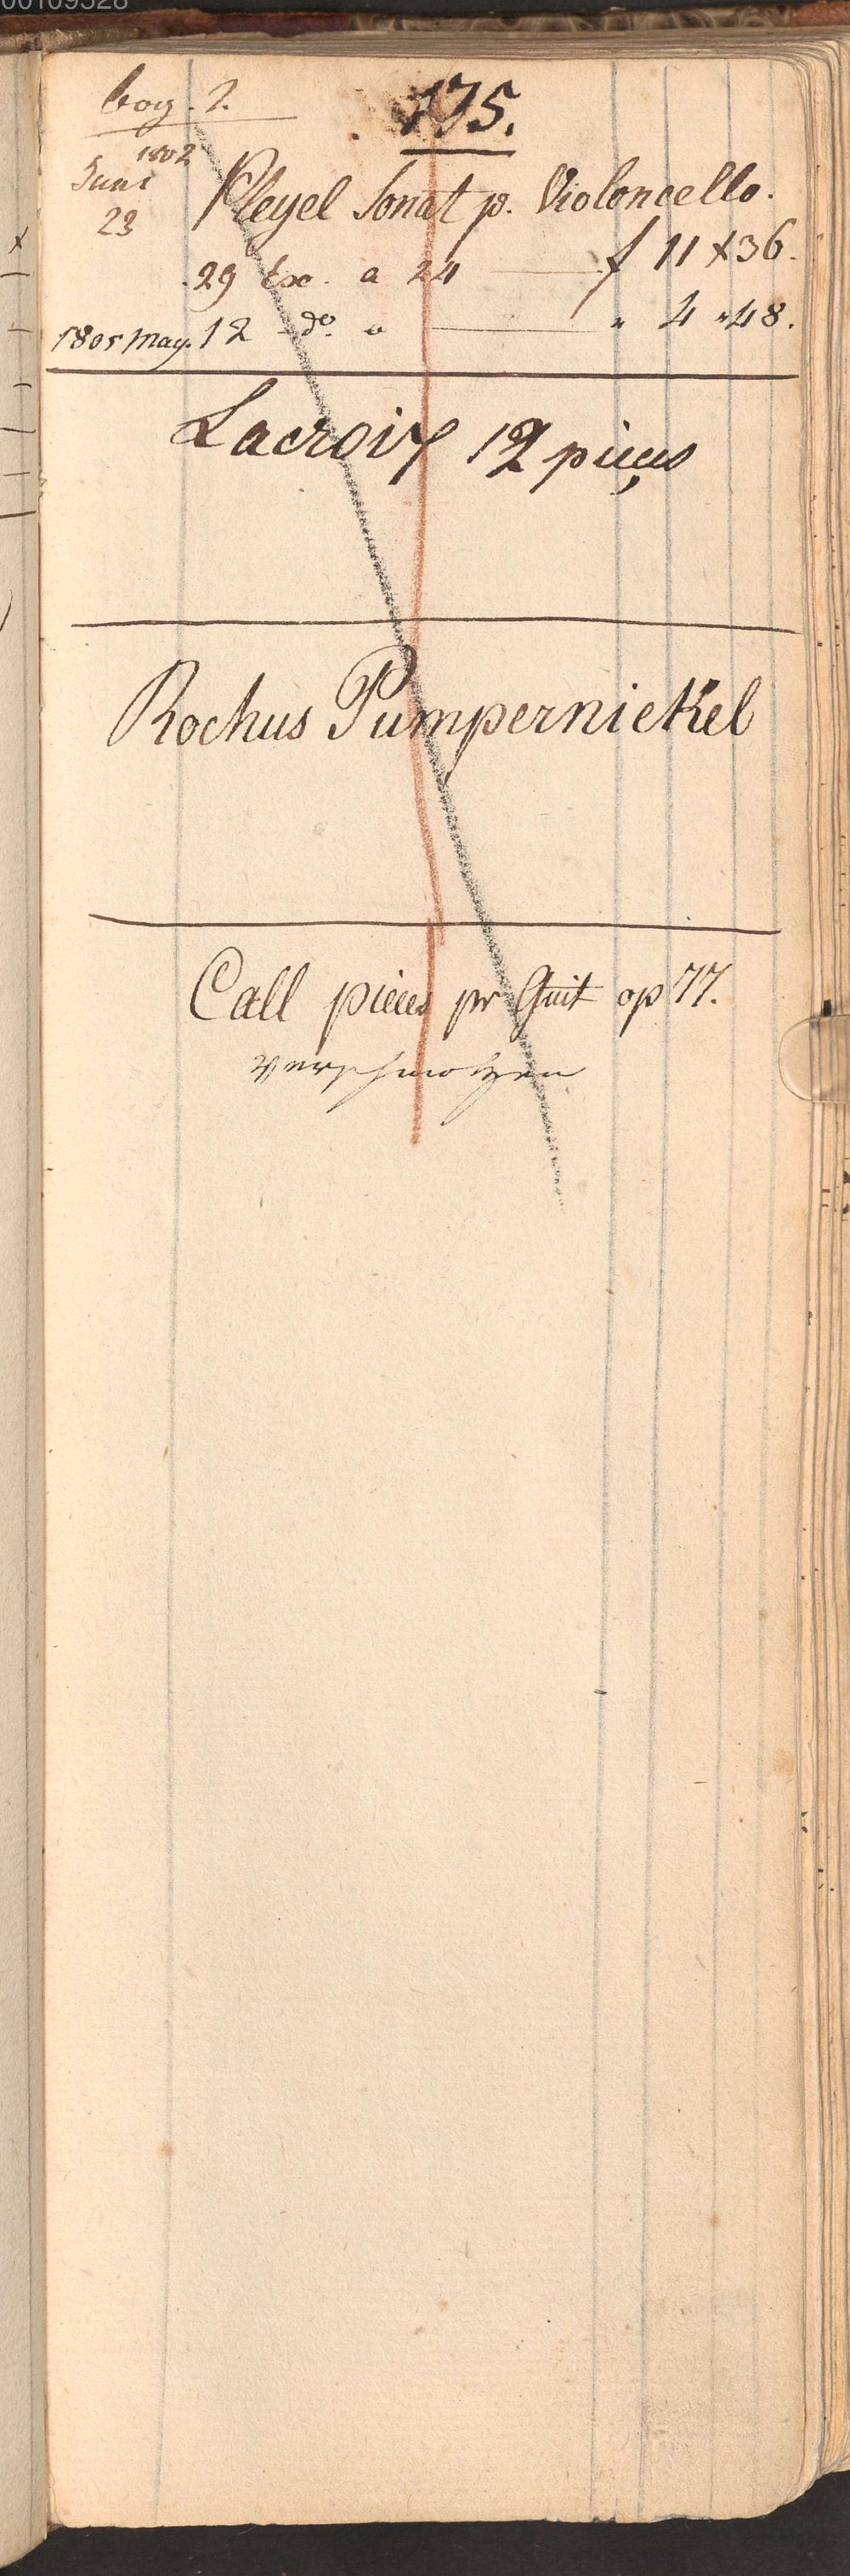 bog. 2.
175.
1802
Juni
23
Pleyel Sonat p. Violoncello.
29 Exo. a 24 f 11 x 36.
1805 May. 12 do. a " 4 " 48.
Lacroix 12 pieçes
Rochus Pumpernickel
Call pieces pr Guit op 77.
verschmolzen